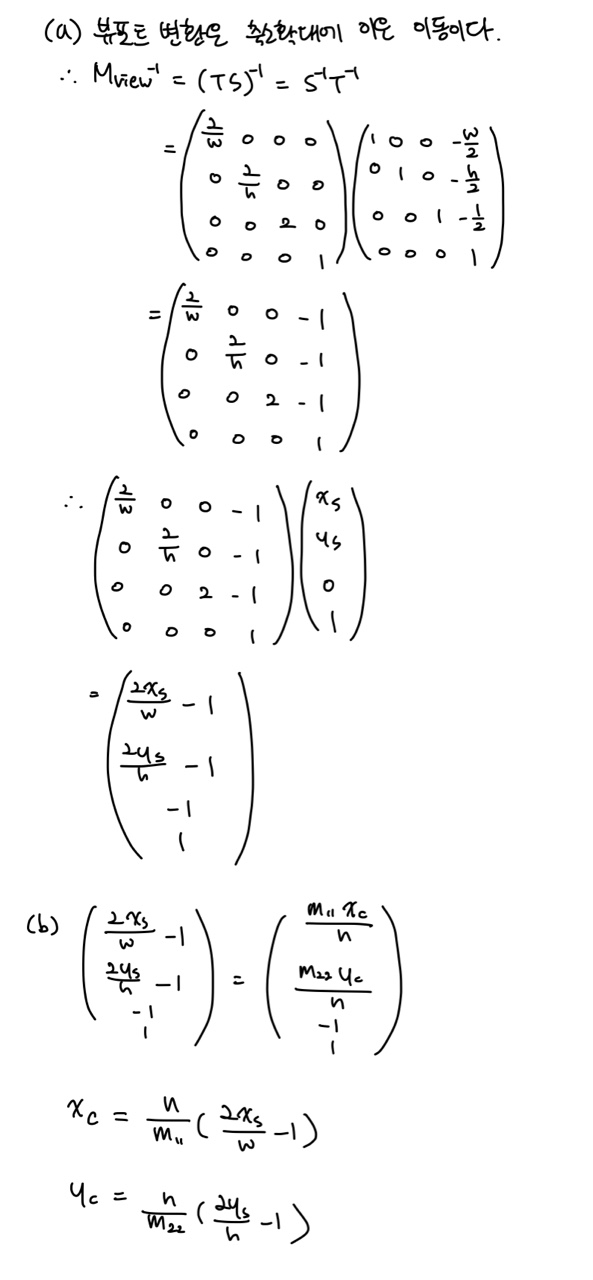 (a) 뷰포트 변환은 축소확대에 이은 이동이다.
∴ Mview⁻¹ = (TS)⁻¹ = S⁻¹T⁻¹
= ( 2/w 0 0 0
0 2/h 0 0
0 0 2 0
0 0 0 1 ) ( 1 0 0 -w/2
0 1 0 -h/2
0 0 1 -1/2
0 0 0 1 )
= ( 2/w 0 0 -1
0 2/h 0 -1
0 0 2 -1
0 0 0 1 )
∴ ( 2/w 0 0 -1
0 2/h 0 -1
0 0 2 -1
0 0 0 1 ) ( xs
ys
0
1 )
= ( 2xs/w - 1
2ys/h - 1
-1
1 )
(b) ( 2xs/w - 1
2ys/h - 1
-1
1 ) = ( m11 xc/n
m22 yc/n
-1
1 )
xc = n/m11 ( 2xs/w - 1 )
yc = n/m22 ( 2ys/h - 1 )